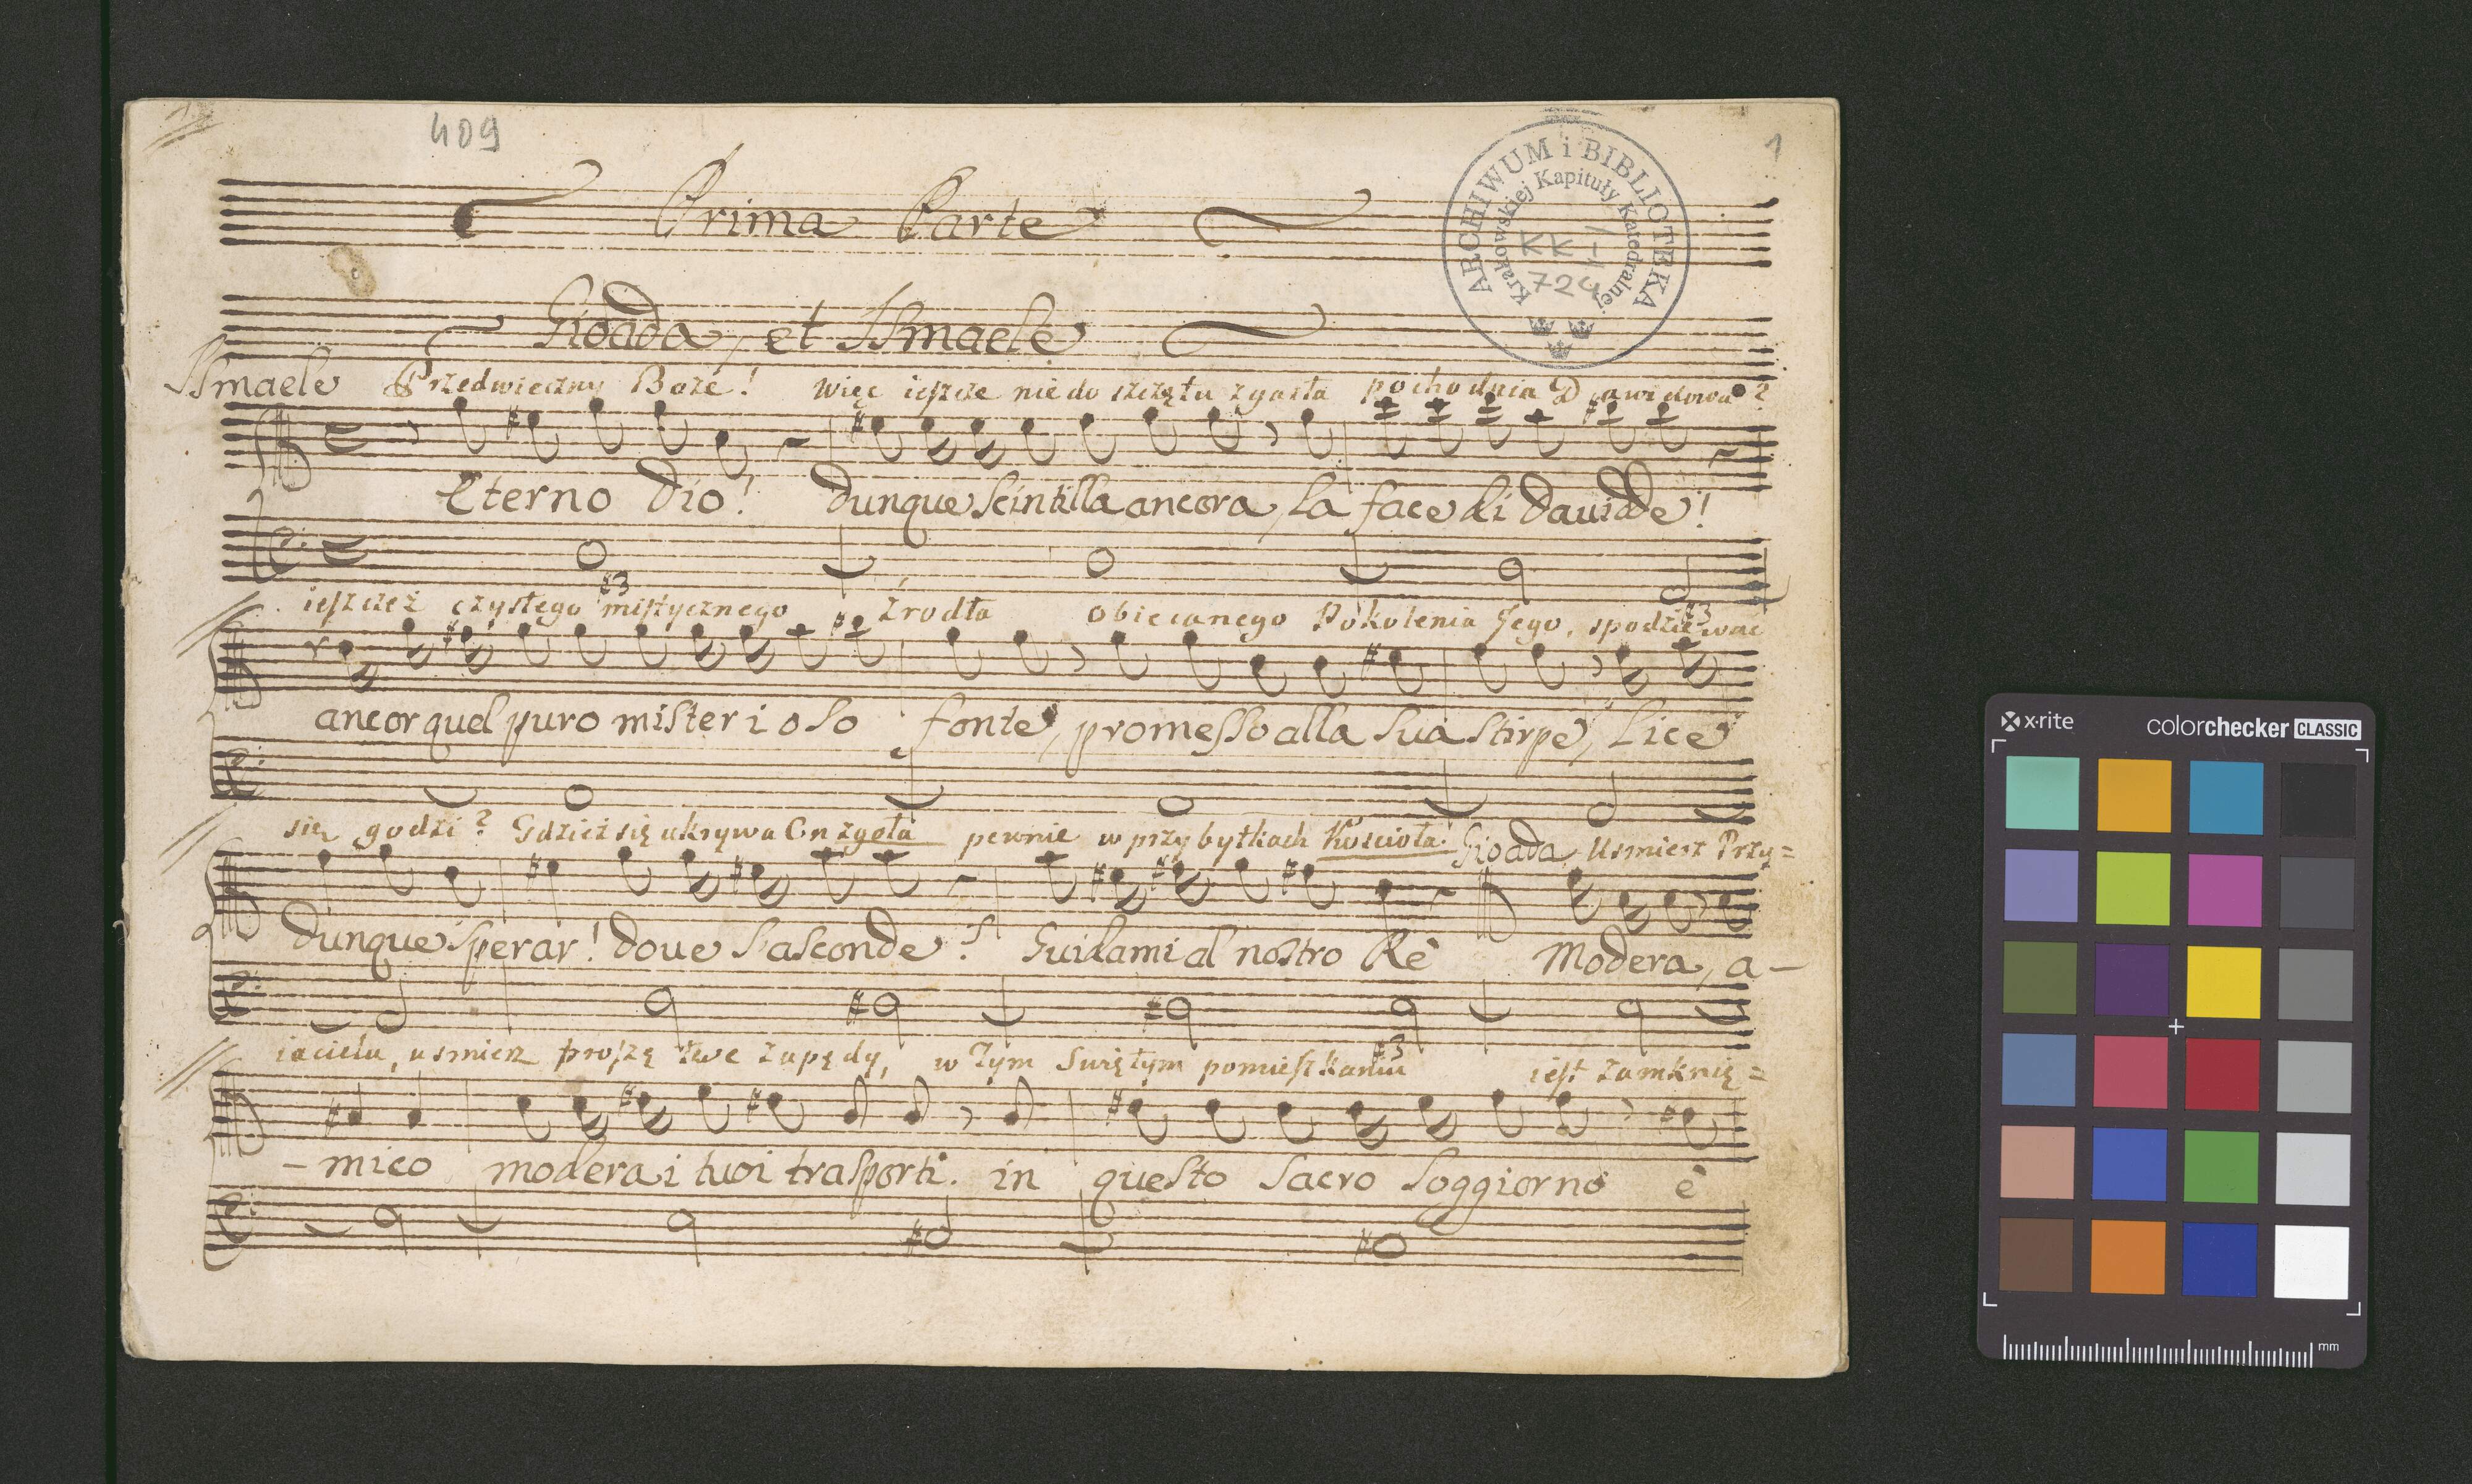 409
1
Prima Parte
ARCHIWUM i BIBLIOTEKA
Krakowskiej Kapituły Katedralnej
KK I
724
Gioada, et Ismaele
Ismaele Przedwieczny Boże! Więc ieszcze nie do szczętu zgasła pochodnia Dawidowa?
Eterno Dio! dunque scintilla ancora, la face di Dauidde!
#3
#3
ieszcze ż czystego mistycznego źrodła obiecanego Pokolenia Jego, spodziewać
ancor quel puro misterioso fonte, promesso alla sua stirpe, Lice
się godzi? Gdzież się ukrywa On zgoła pewnie w przybytkach Kościoła. Gioada Usmierz Przy=
dunque sperar! doue s'asconde? Guidami al nostro Rè Modera, a-
#3
iacielu, usmierz proszę twe zapędy, w Tym Swiętym pomieszkaniu iest zamknię=
-mico modera i tuoi trasporti. in questo sacro soggiorno è
x·rite
colorchecker CLASSIC
mm